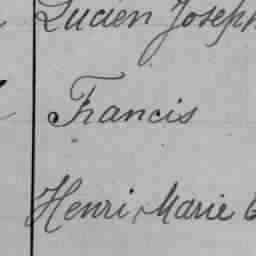 Lucien Joseph
Francis
Henri Marie